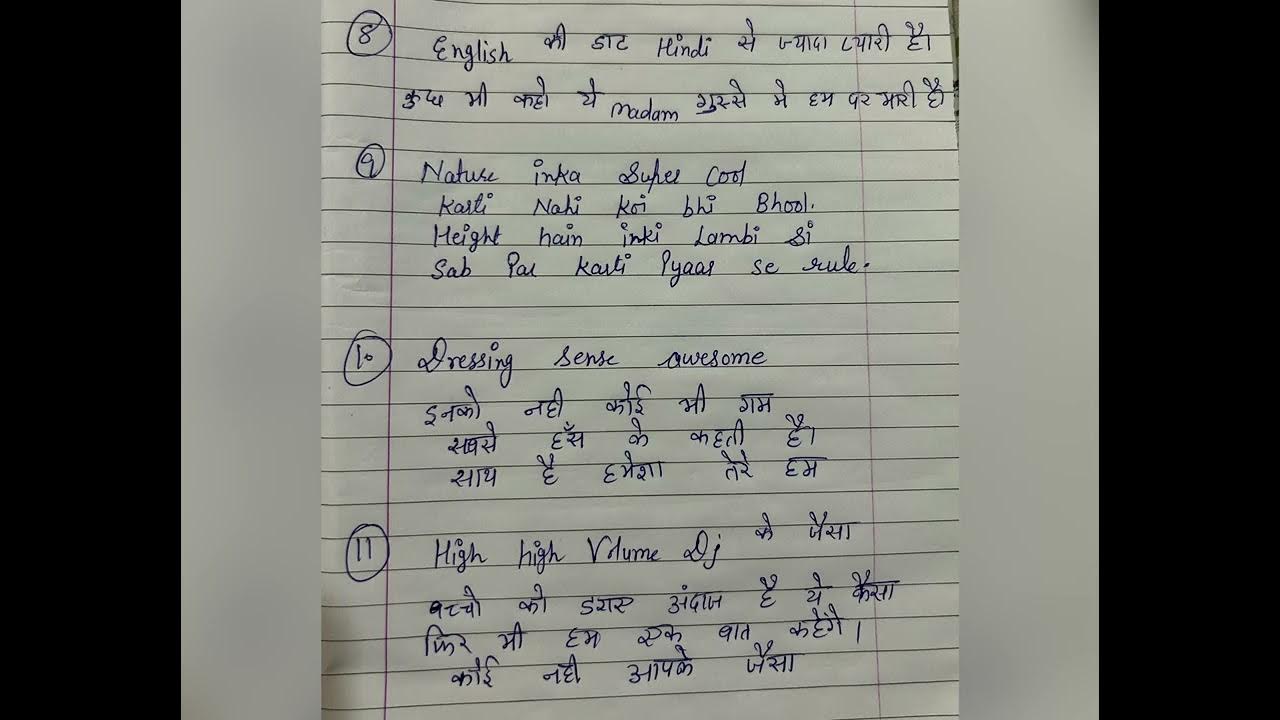 8 English की डाट Hindi से ज्यादा प्यारी है।
कुछ भी कहो ये Madam गुस्से मे हम पर भारी है।
9 Nature inka Super Cool
Karti Nahi Koi bhi Bhool.
Height hain inki Lambi Si
Sab Par Karti Pyaar se rule.
10 Dressing sense awesome
इनको नही कोई भी गम
सबसे हँस के कहती है।
साथ है हमेशा तेरे हम
11 High high Volume Dj के जैसा
बच्चो को डराए अंदाज है ये कैसा
फिर भी हम एक बात कहेगें।
कोई नही आपके जैसा